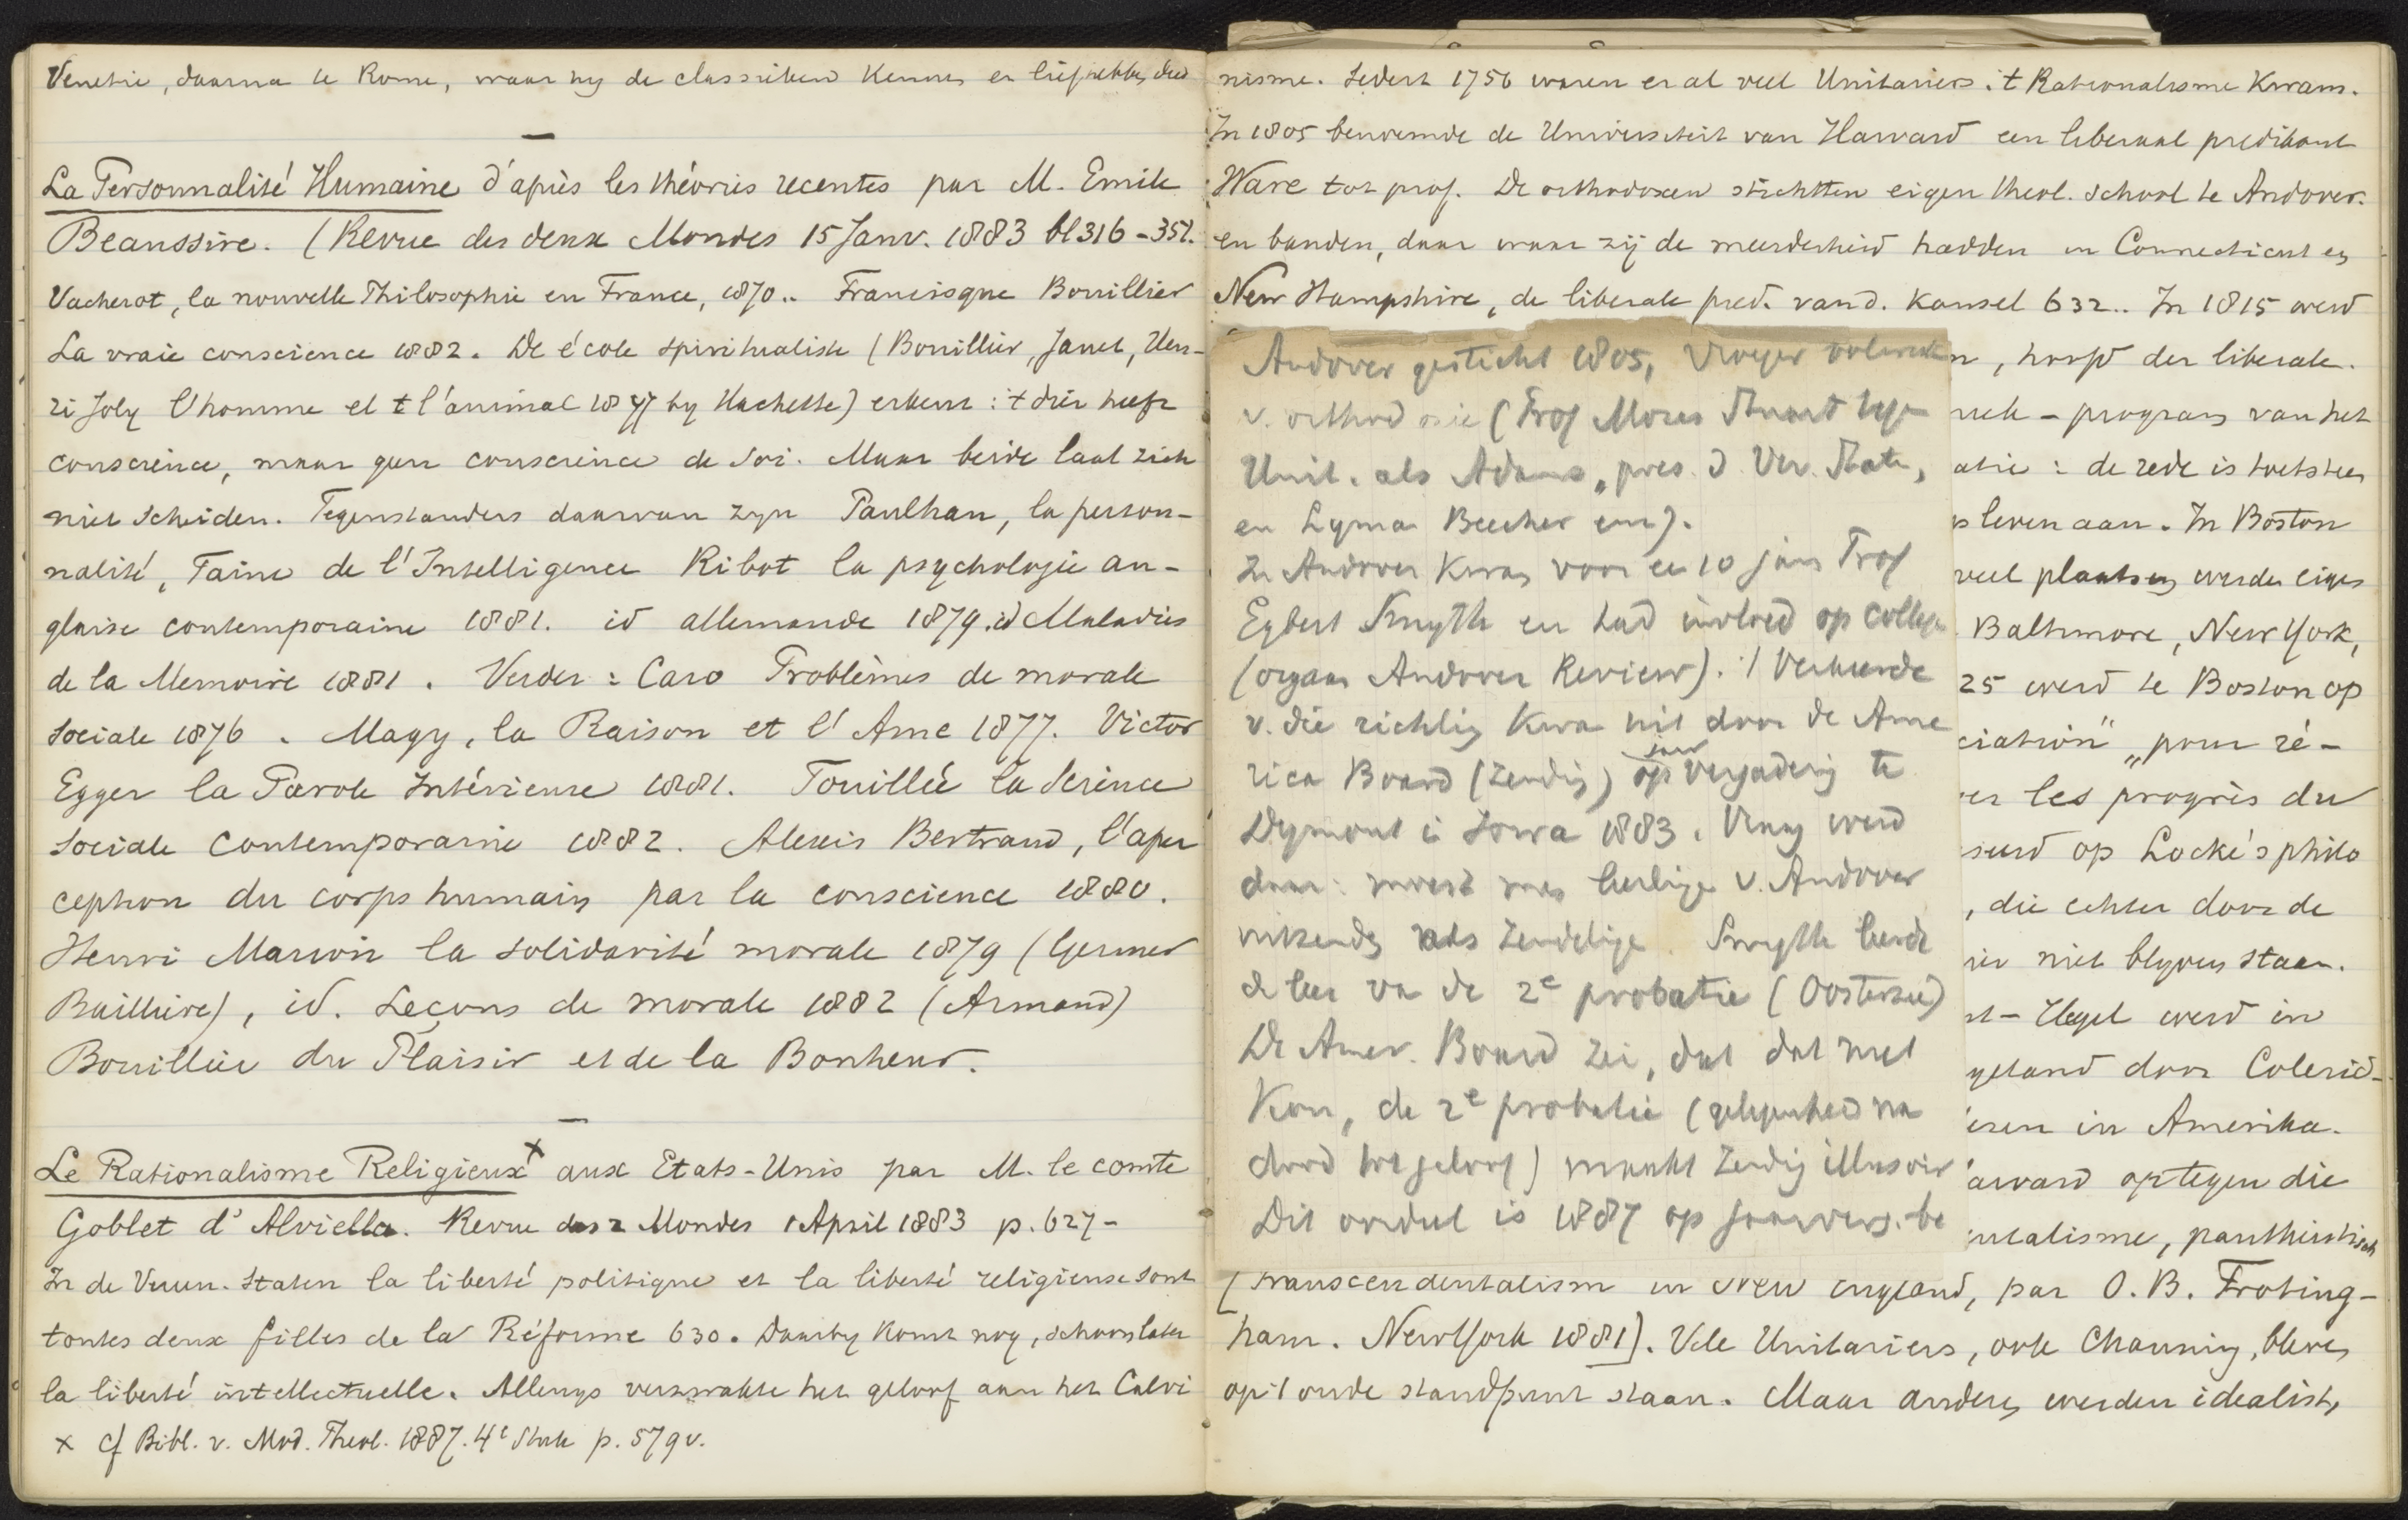 Venetie, daarna te Rome, waar hy de classieken kennen en liefhebben deed
La Personnalité Humaine d'après les théories recentes par M. Emile
Beaussire. (Revue des deux Mondes 15 Janv. 1883 bl 316-351.
Vacherot, la nouvelle Philosophie en France, 1870.. Francisque Bouillier
La vraie conscience 1882. De école spiritualiste (Bouillier, Janet, Hen-
ri Joly l'homme et l'animal 1877 by Hachette) erkent: 't dier heeft
conscience, maar geen conscience de soi. Maar beide laat zich
niet scheiden. Tegenstanders daarvan zyn Paulhan, la person-
nalité, Taine de l'Intelligence Ribot la psychologie an-
glaise contemporaine 1881. id allemande 1879. id Maladies
de la Memoire 1881. Verder: Caro Problèmes de morale
sociale 1876. Magy, la Raison et l'Ame 1877. Victor
Egger la Parole Intérieure 1881. Fouillée la Science
sociale contemporaine 1882. Alexis Bertrand, l'aper
ception du corps humain par la conscience 1880.
Henri Marion la solidarité morale 1879 (Germer
Baillière), id. Leçons de morale 1882 (Armand)
Bouillier du Plaisir et de la Bonheur.
Le Rationalisme Religieux x aux Etats-Unis par M. le comte
Goblet d'Alviella. Revue des 2 Mondes 1 April 1883 p. 627-
In de Vereen. Staten la liberté politique et la liberté religieuse sont
toutes deux filles de la Réforme 630. Daarby komt nog, schoon later
la liberté intellectuelle. Allengs verzwakte het geloof aan het Calvi
x cf Bibl. v. Mod. Theol. 1887. 4e Stuk p. 579 v.
nisme. Sedert 1756 waren er al veel Unitariers. 't Rationalisme kwam.
In 1805 benoemde de Universiteit van Harvard een liberaal predikant
Ware tot prof. De orthodoxen stichtten eigen theol. school te Andover.
en banden, daar waar zij de meerderheid hadden in Connecticut en
New Hampshire, de liberale pred. van d. kansel 632.. In 1815 werd
Andover gesticht 1805, vroeger
v. orthodoxie (Prof Moses Stuart tegen
Unit. als Adams, pres. d Ver. State,
en Lyman Beecher enz).
In Andover kwam voor een 10 jaar Prof
Egbert Smyth en had invloed op college
(orgaan Andover Review). 't Verkeerde
v. die richting kwam uit door de Ame
rica Board (zending) op jaarvergadering te
Desmont in Iowa 1883. Vraag werd
daar: moest men leerlingen v. Andover
uitzenden als zendeling. Smyth leerde
de leer van de 2e probatie (Oosterzee)
De Amer. Board zei, dat dat niet
kon, de 2e probatie (gelegenheid na
dood tot geloof) maakt zending illusoir
Dit oordeel is 1887 op jaarverg. be
n, hoofd der liberale.
program van het
atie: de rede is toetssteen
leven aan. In Boston
veel plaatsen werden eigen
Baltimore, New York,
25 werd te Boston op
ciation" „pour ré-
er les progrès du
seerd op Locke's philo
, die echter door de
niet blyven staan.
nt-Hegel werd in
geland door Colerid-
in Amerika.
arvard op tegen die
entalisme, pantheistisch
[Transcendentalism in New England, par O. B. Froting-
ham. New York 1881]. Vele Unitariers, ook Channing, bleven
op 't oude standpunt staan. Maar anderen werden idealist,